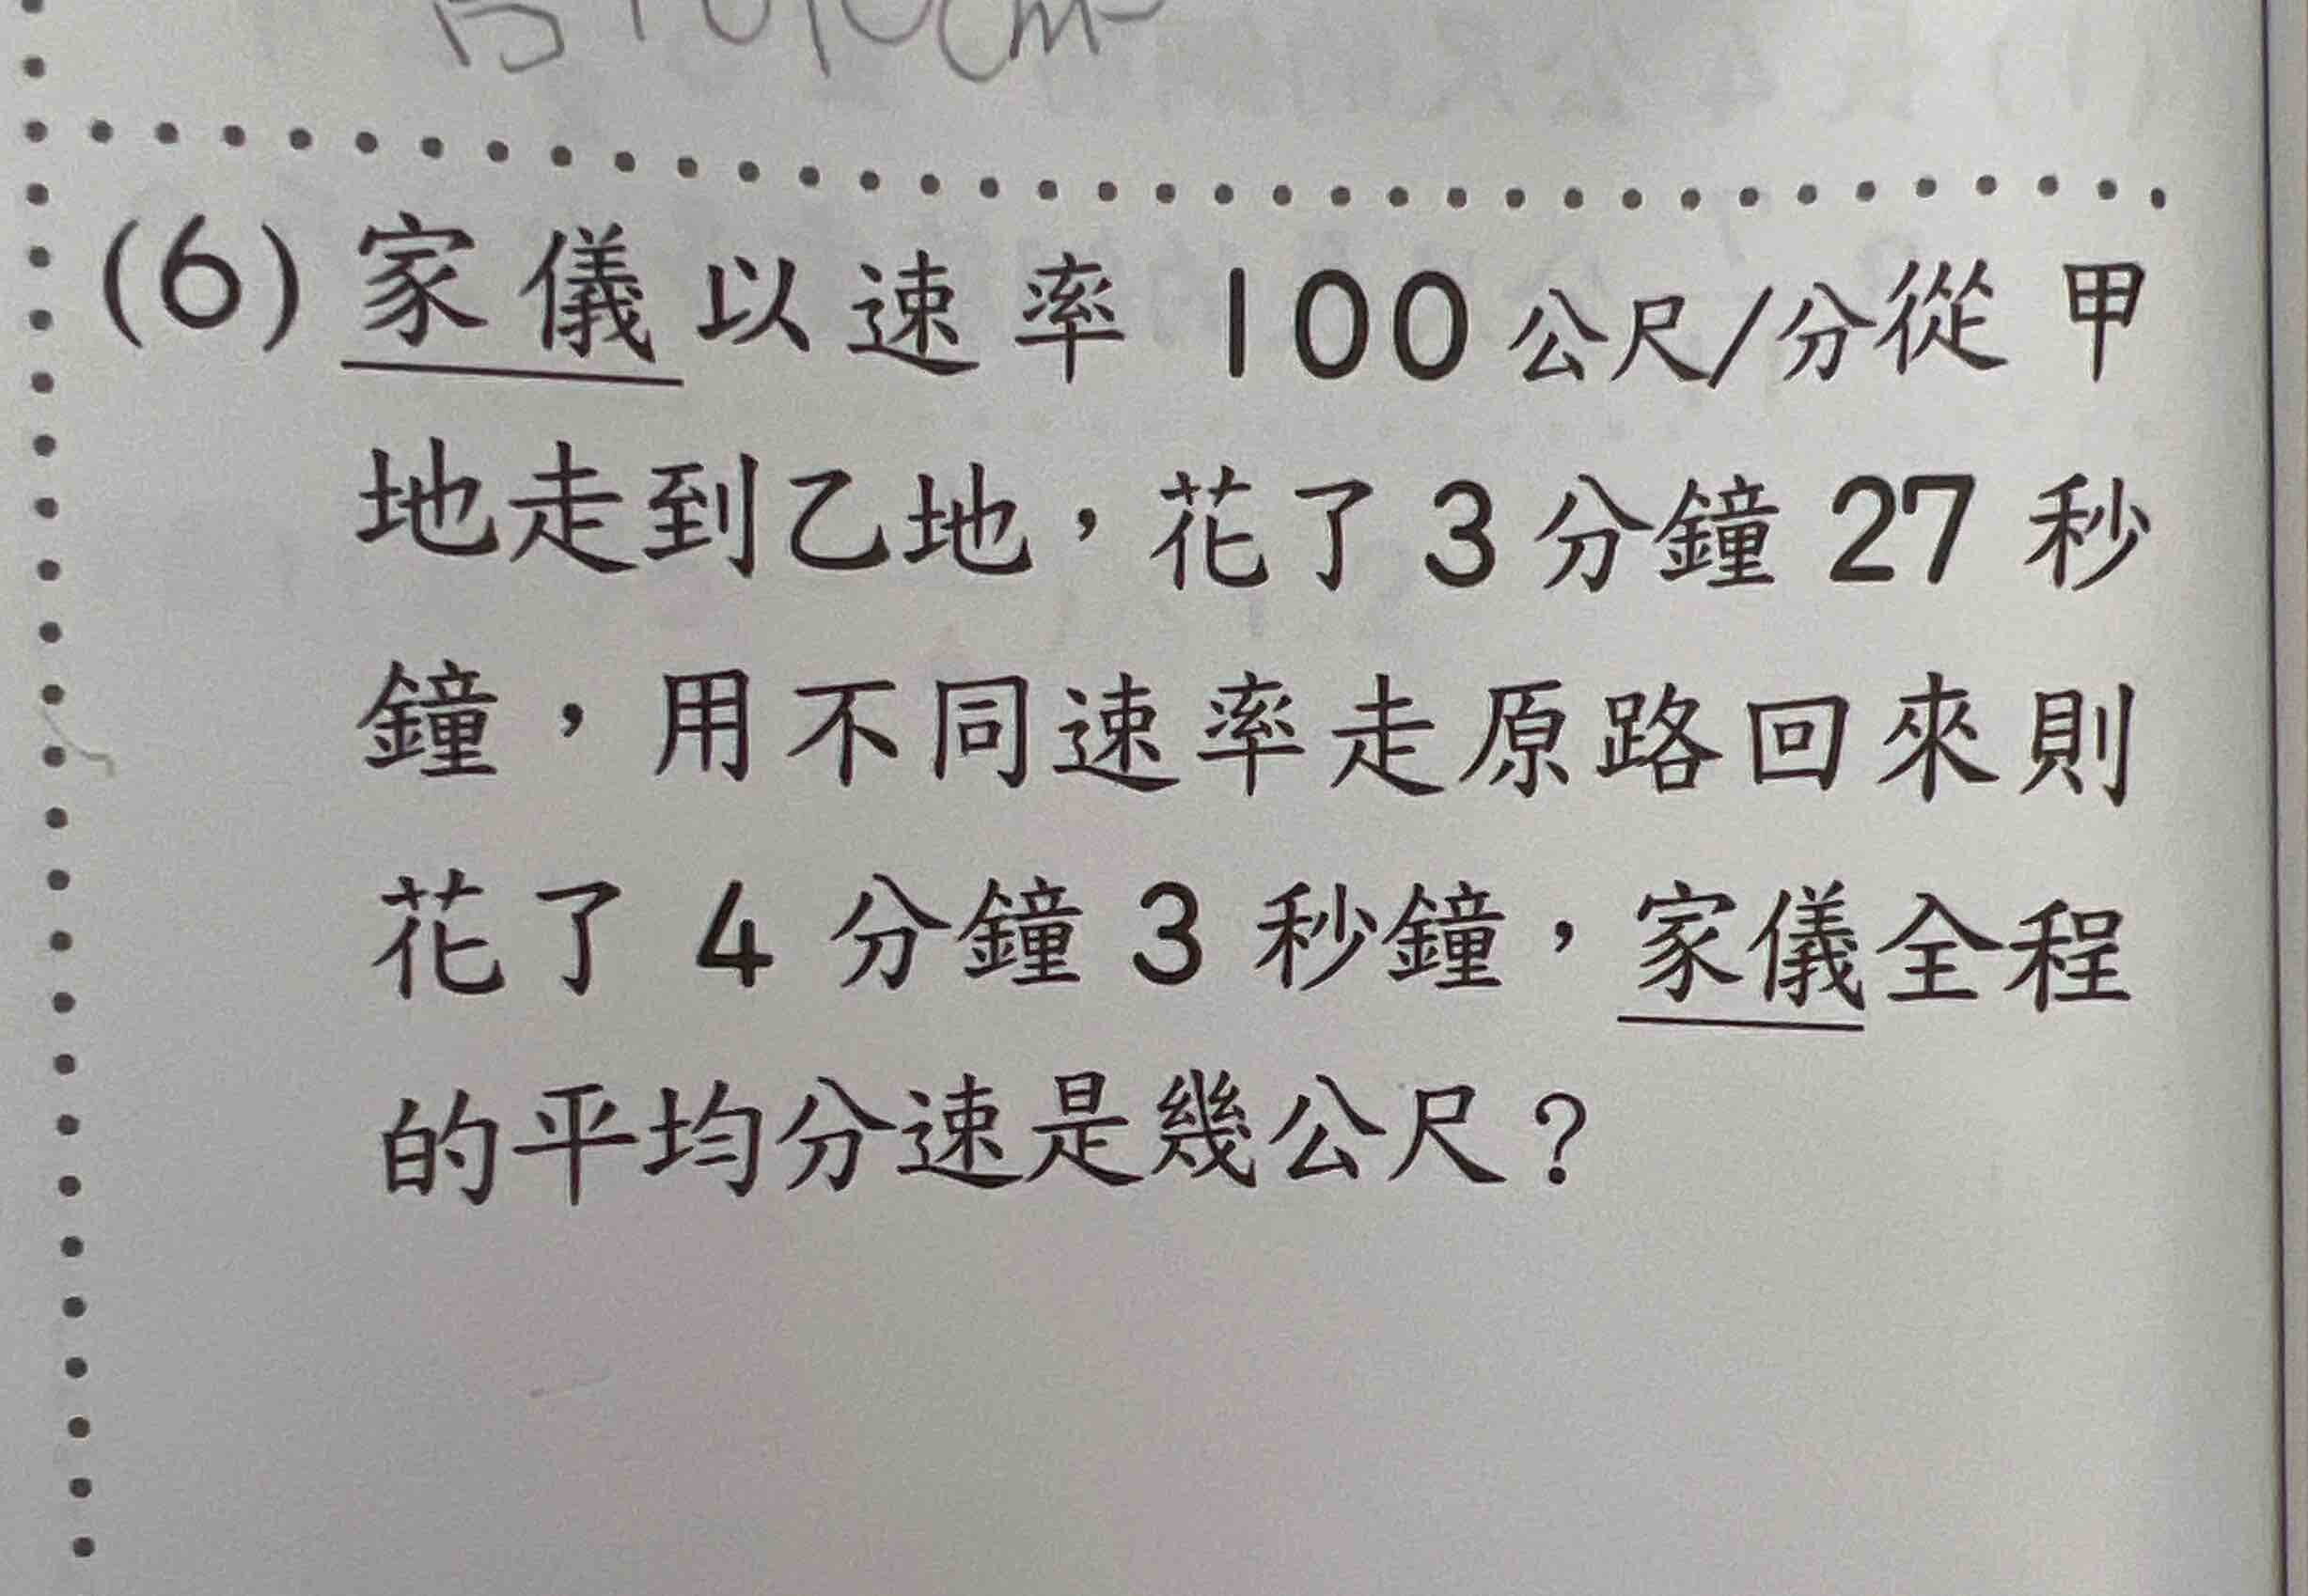 (6)家儀以速率 100公尺/分從甲
地走到乙地，花了3分鐘27秒
鐘，用不同速率走原路回來則
花了4分鐘3秒鐘，家儀全程
的平均分速是幾公尺？